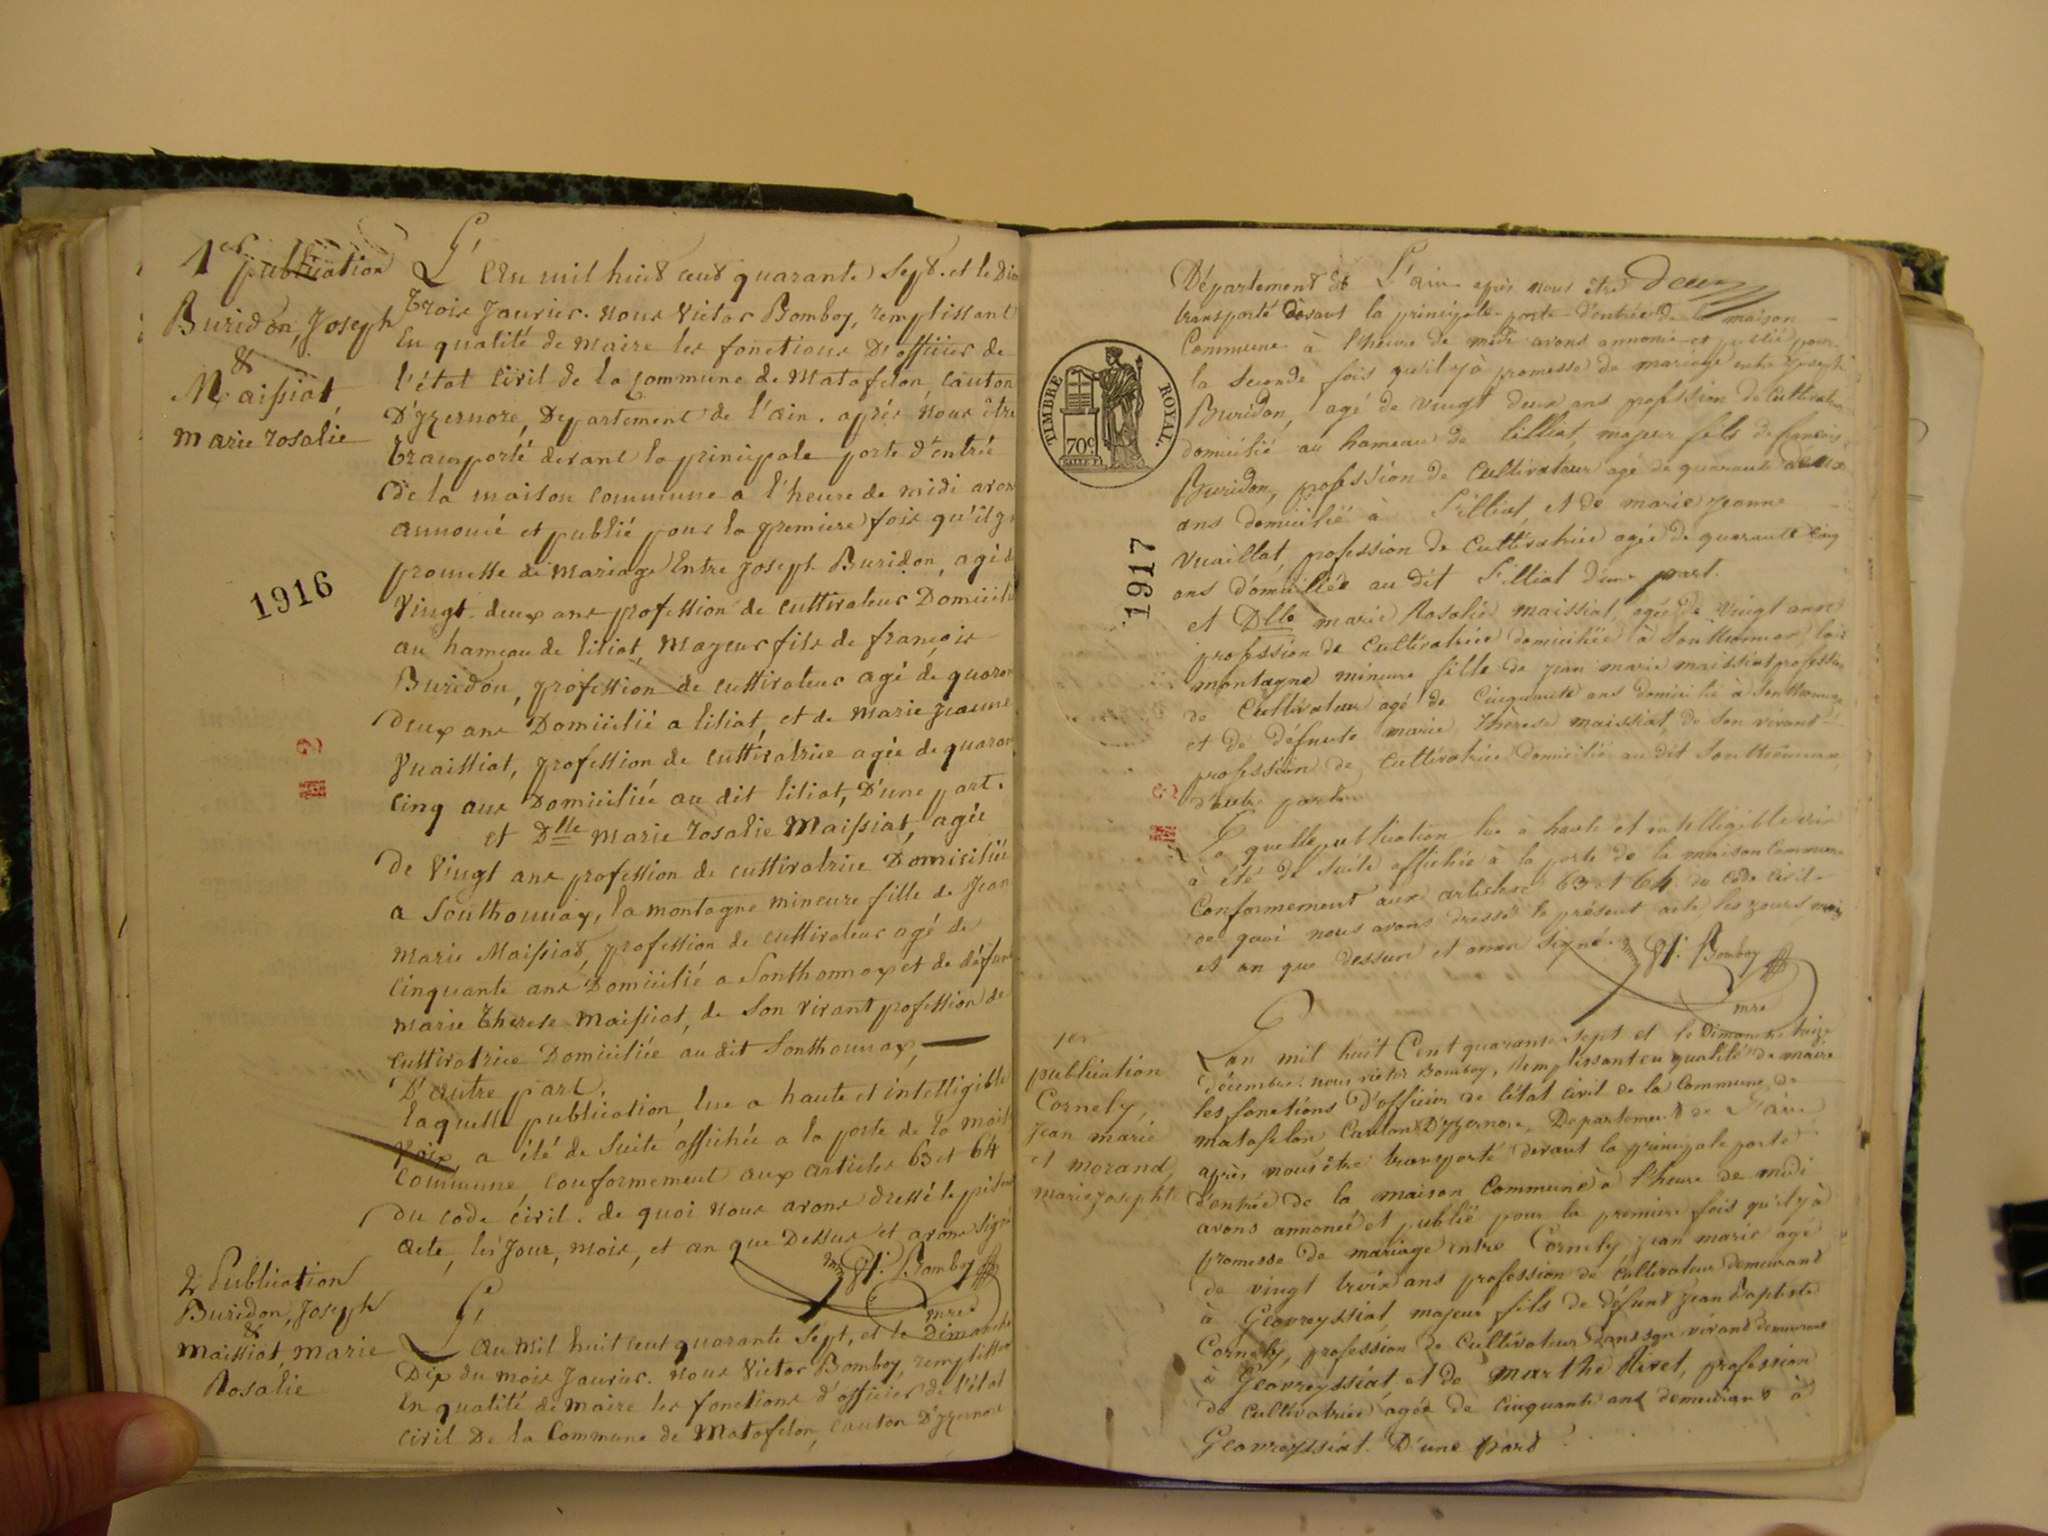 1er publication
Buridon, Joseph
&
Maissiat,
Marie rosalie
1916
L'An mil huit cent quarante sept. et le
trois Janvier. nous Victor Bomboy, remplissant
En qualité de maire les fonctions D'officier de
l'état Civil de la commune de Matafelon, Canton
D'yzernore, Departement de l'ain. après nous être
transporté devant la principale porte d'entrée
de la maison commune a l'heure de midi avons
annoncé et publié pour la premiere fois qu'il y
promesse de mariage Entre Joseph Buridon, agé de
Vingt-deux ans profession de cultivateur Domicilié
au hameau de liliat, Mayeur fils de françois
Buridon, profession de cultivateur agé de quaran
Deux ans Domicilié a liliat, et de Marie Jeanne
Vuaissiat, profession de cultivatrice agée de quaran
Cinq ans Domiciliée au dit liliat, D'une part.
et Dlle Marie rosalie Maissiat, agée
De Vingt ans profession de cultivatrice Domiciliée
a Sonthonnax, la montagne mineure fille de Jean
marie Maissiat, profession de cultivateur agé de
Cinquante ans Domicilié a Sonthonnax et de défun
marie therese Maissiat, de Son vivant profession de
cultivatrice Domiciliée au dit Sonthonnax,
D'autre part.
laquelle publication, lue a haute et intelligible
Voix, a été de Suite affichée a la porte de la mais
Commune, conformement aux articles 63 et 64
Du code civil. de quoi nous avons dressé le présent
acte, les Jour, mois, et an que Dessus et avons signé
Vt. Bomboy
mre
2e Publication
Buridon, Joseph
&
Maissiat marie
Rosalie
L'An Mil huit cent quarante Sept, et le Dimanche
Dix du mois Janvier. nous Victor Bomboy, remplissant
En qualité de maire les fonctions d'officier de l'état
Civil De la Commune de Matafelon, Canton D'yzernore
Département de L'ain après nous être
transporté devant la principale porte d'entrée de la maison
Commune à l'heure de midi avons annoncé et publié pour
la Seconde fois qu'il y à promesse de mariage entre Joseph
Buridon, agé de vingt deux ans profession de Cultivateur
domicilié au hameau de lilliat, majeur fils de françois
Buridon, profession de Cultivateur agé de quarante deux
ans domicilié à Lilliat, et de marie jeanne
Vuaillat, profession de Cultivatrice agée de quarante Cinq
ans domiciliée au dit Lilliat d'une part.
et Dlle marie Rosalie maissiat, agée de Vingt ans
profession de Cultivatrice domiciliée à Sonthonnax la
montagne mineure fille de jean marie maissiat profession
de Cultivateur agé de Cinquante ans domicilié à Sonthonnax
et de défunte marie Thérèse maissiat, de Son vivant
profession de Cultivatrice Domiciliée au dit Sonthonnax,
d'autre part.
La quelle publication lue à haute et intelligible voix
à été de Suite affichée à la porte de la maison Commune
Conformement aux articles 63 et 64 du Code Civil
de quoi nous avons dressé le présent acte les jours mois
et an que dessus et avons Signé.
Vt. Bomboy
mre
TIMBRE ROYAL.
70c
1917
1er
publication
Cornely,
jean marie
et morand,
marie josephte
L'an mil huit Cent quarante Sept et le Dimanche treize
décembre. nous victor Bomboy, Remplissant en qualité de maire
les fonctions d'officier de l'état Civil de la Commune de
matafelon Canton D'yzernore, Departement de L'ain
après nous être transporté devant la principale porte
d'entrée de la maison Commune à l'heure de midi
avons annoncé et publié pour la premiere fois qu'il y à
promesse de mariage entre Cornely jean marie agé
de vingt trois ans profession de Cultivateur demeurant
à Geovreyssiat, majeur fils de défunt Jean Baptiste
Cornely, profession de Cultivateur dans son vivant demeurant
à Geovreyssiat, et de Marthe Nivet, profession
de Cultivatrice agée de Cinquante ans demeurant à
Geovreyssiat. D'une part